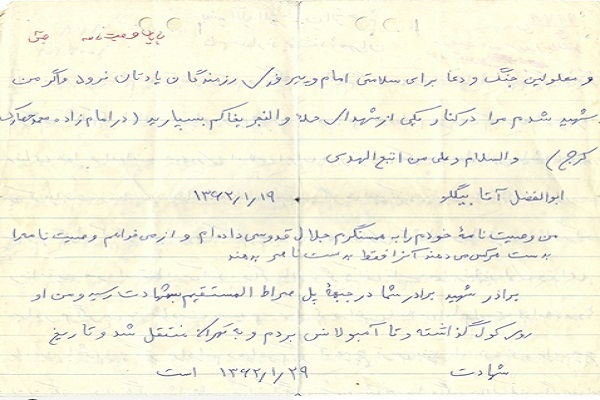 پایان وصیت نامه
و معلولین جنگ و دعا برای سلامتی امام و پیروزی رزمندگان یادتان نرود و اگر من
شهید شدم مرا در کنار یکی از شهدای حمله والفجر بخاکم بسپارید (در امام زاده محمد حصارک
کرج) والسلام و علی من اتبع الهدی
ابوالفضل آقا بیگلو ۱۳۶۲/۱/۱۹
من وصیت نامهٔ خودم را به همسنگرم جلال قدوسی داده ام و از او می خواهم وصیت نامه را
بدست هرکس می دهند آنرا فقط بدست مادر بدهند
برادر شهید برادر شما در جبههٔ پل صراط المستقیم بشهادت رسید و من او
روی کول گذاشته و تا آمبولانس بردم و به تهران منتقل شد و تاریخ
شهادت ۱۳۶۲/۱/۲۹ است